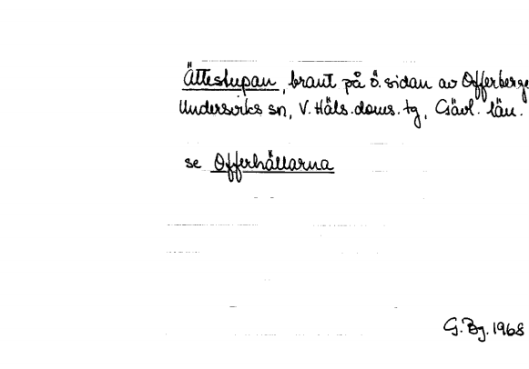 Ättestupan, brant på ö. sidan av Offerberge
Undersviks sn, V. Häls. doms. tg, Gävl. län.
se Offerhällarna
G. By. 1968